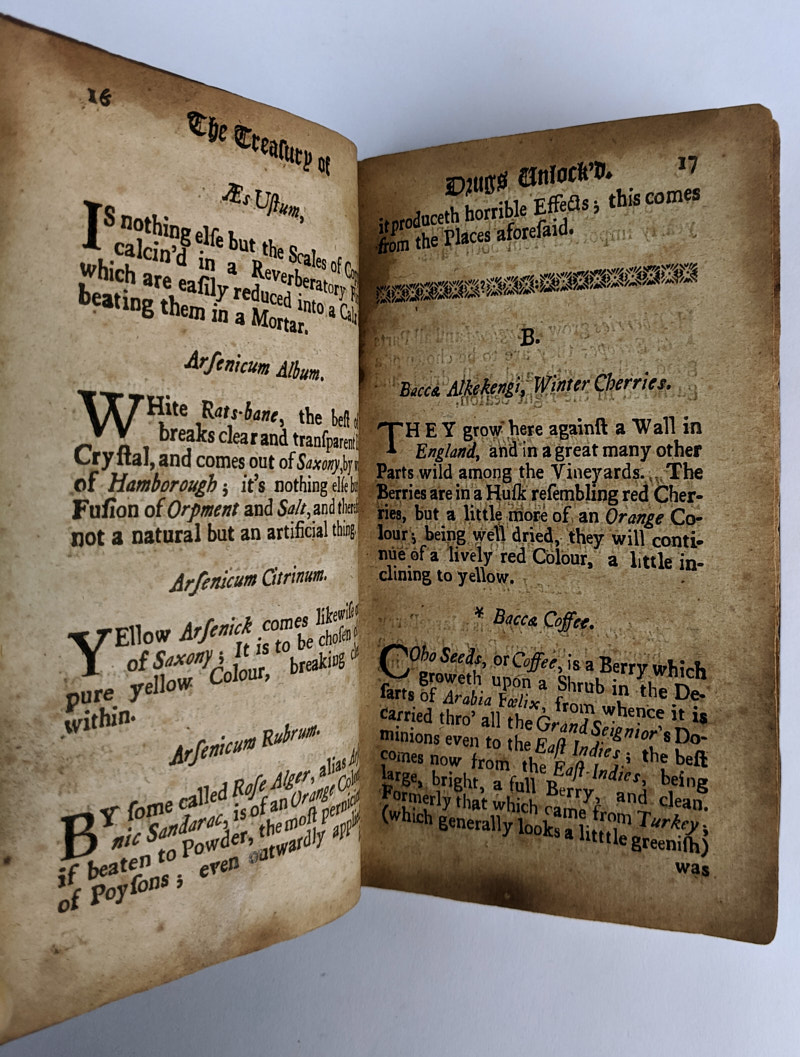 16
The Treaſury of
Æs Uſtum,
IS nothing elſe but the Scales of
calcin'd in a Reverberatory
which are eaſily reduced into a
beating them in a Mortar.
Arſenicum Album.
WHite Rats-bane, the beſt
breaks clear and tranſparent
Cryſtal, and comes out of Saxony, by
of Hamborough; it's nothing elſe
Fuſion of Orpment and Salt, and
not a natural but an artificial thing.
Arſenicum Citrinum.
YEllow Arſenick comes likewiſe
of Saxony; It is to be choſen
pure yellow Colour, breaking
within.
Arſenicum Rubrum.
BY ſome called Roſe Alger, alias
nic Sandarac, is of an Orange
if beaten to Powder, the moſt
of Poyſons; even outwardly
Drugs Unlock'd. 17
it produceth horrible Effects; this comes
from the Places aforeſaid.
B.
Baccæ Alkekengi, Winter Cherries.
THEY grow here againſt a Wall in
England, and in a great many other
Parts wild among the Vineyards. The
Berries are in a Huſk reſembling red Cher-
ries, but a little more of an Orange Co-
lour; being well dried, they will conti-
nue of a lively red Colour, a little in-
clining to yellow.
* Baccæ Coffee.
COho Seeds, or Coffee, is a Berry which
groweth upon a Shrub in the De-
ſarts of Arabia Fœlix, from whence it is
carried thro' all the Grand Seignior's Do-
minions even to the Eaſt Indies; the beſt
comes now from the Eaſt-Indies, being
large, bright, a full Berry, and clean.
Formerly that which came from Turkey;
(which generally looks a litttle greeniſh)
was